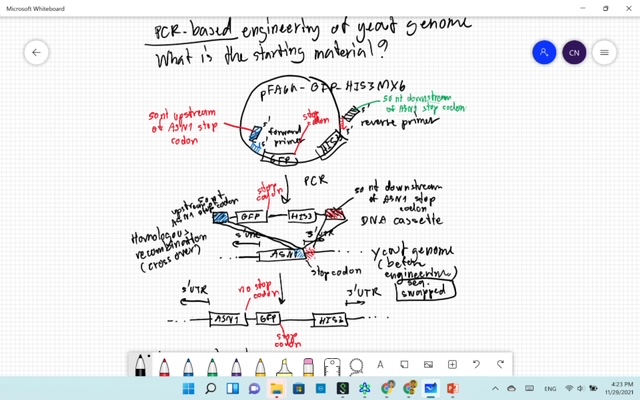 Microsoft Whiteboard
PCR-based engineering of yeast genome
What is the starting material?
CN
pFA6a-GFP-HIS3MX6
50 nt upstream
of ASN1 stop
codon
5'
forward
primer
stop
codon
GFP
HIS3
5'
5'
reverse primer
50 nt downstream
of ASN1 stop codon
PCR
50 nt
upstream
ASN1 stop codon
stop
codon
GFP
HIS3
50 nt downstream
of ASN1 stop
codon
DNA cassette
Homologous
recombination
(cross over)
5'UTR
3'UTR
ASN1
stop codon
yeast genome
(before
engineering)
seq.
swapped
5'UTR
no stop
codon
3'UTR
ASN1
GFP
HIS3
stop
codon
ENG
4:23 PM
11/29/2021